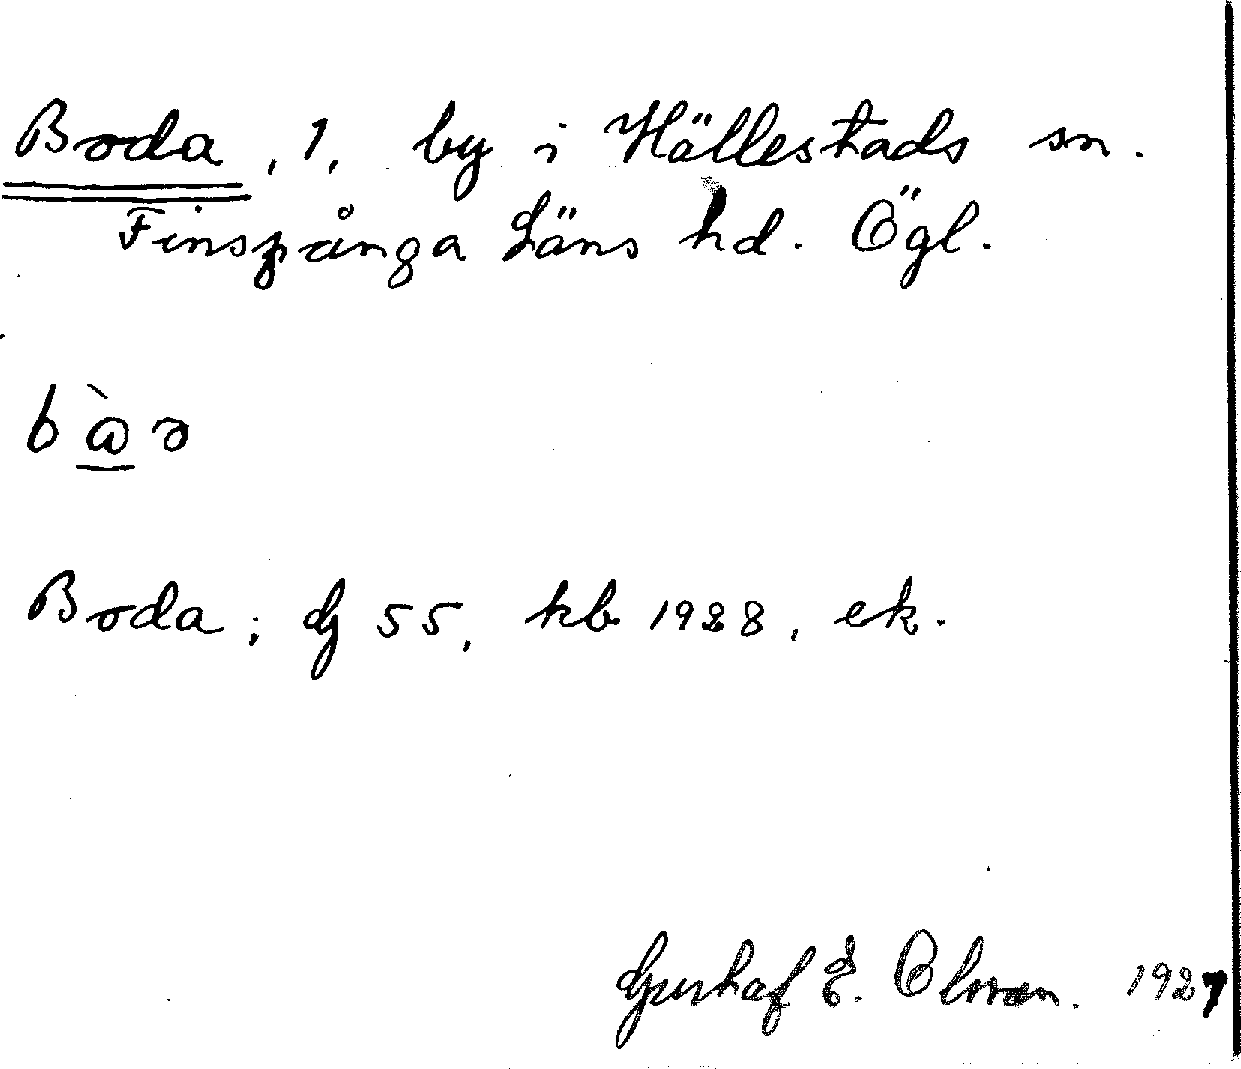 Boda, 1, by i Hällestads sn.
Finspånga Läns hd. Ögl.
Boda; dg 55, kb 1928, ek.
Gustaf E. Olsson. 1927